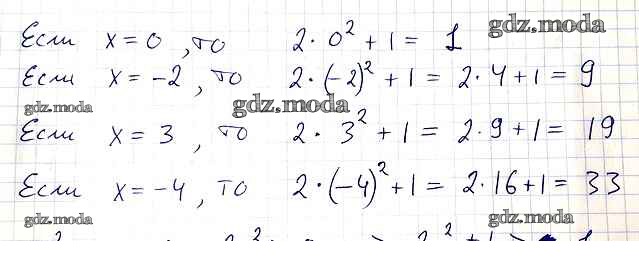 Если x = 0, то 2 · 0² + 1 = 1
gdz.moda
Если x = -2, то 2 · (-2)² + 1 = 2 · 4 + 1 = 9
gdz.moda gdz.moda
Если x = 3, то 2 · 3² + 1 = 2 · 9 + 1 = 19
Если x = -4, то 2 · (-4)² + 1 = 2 · 16 + 1 = 33
gdz.moda gdz.moda